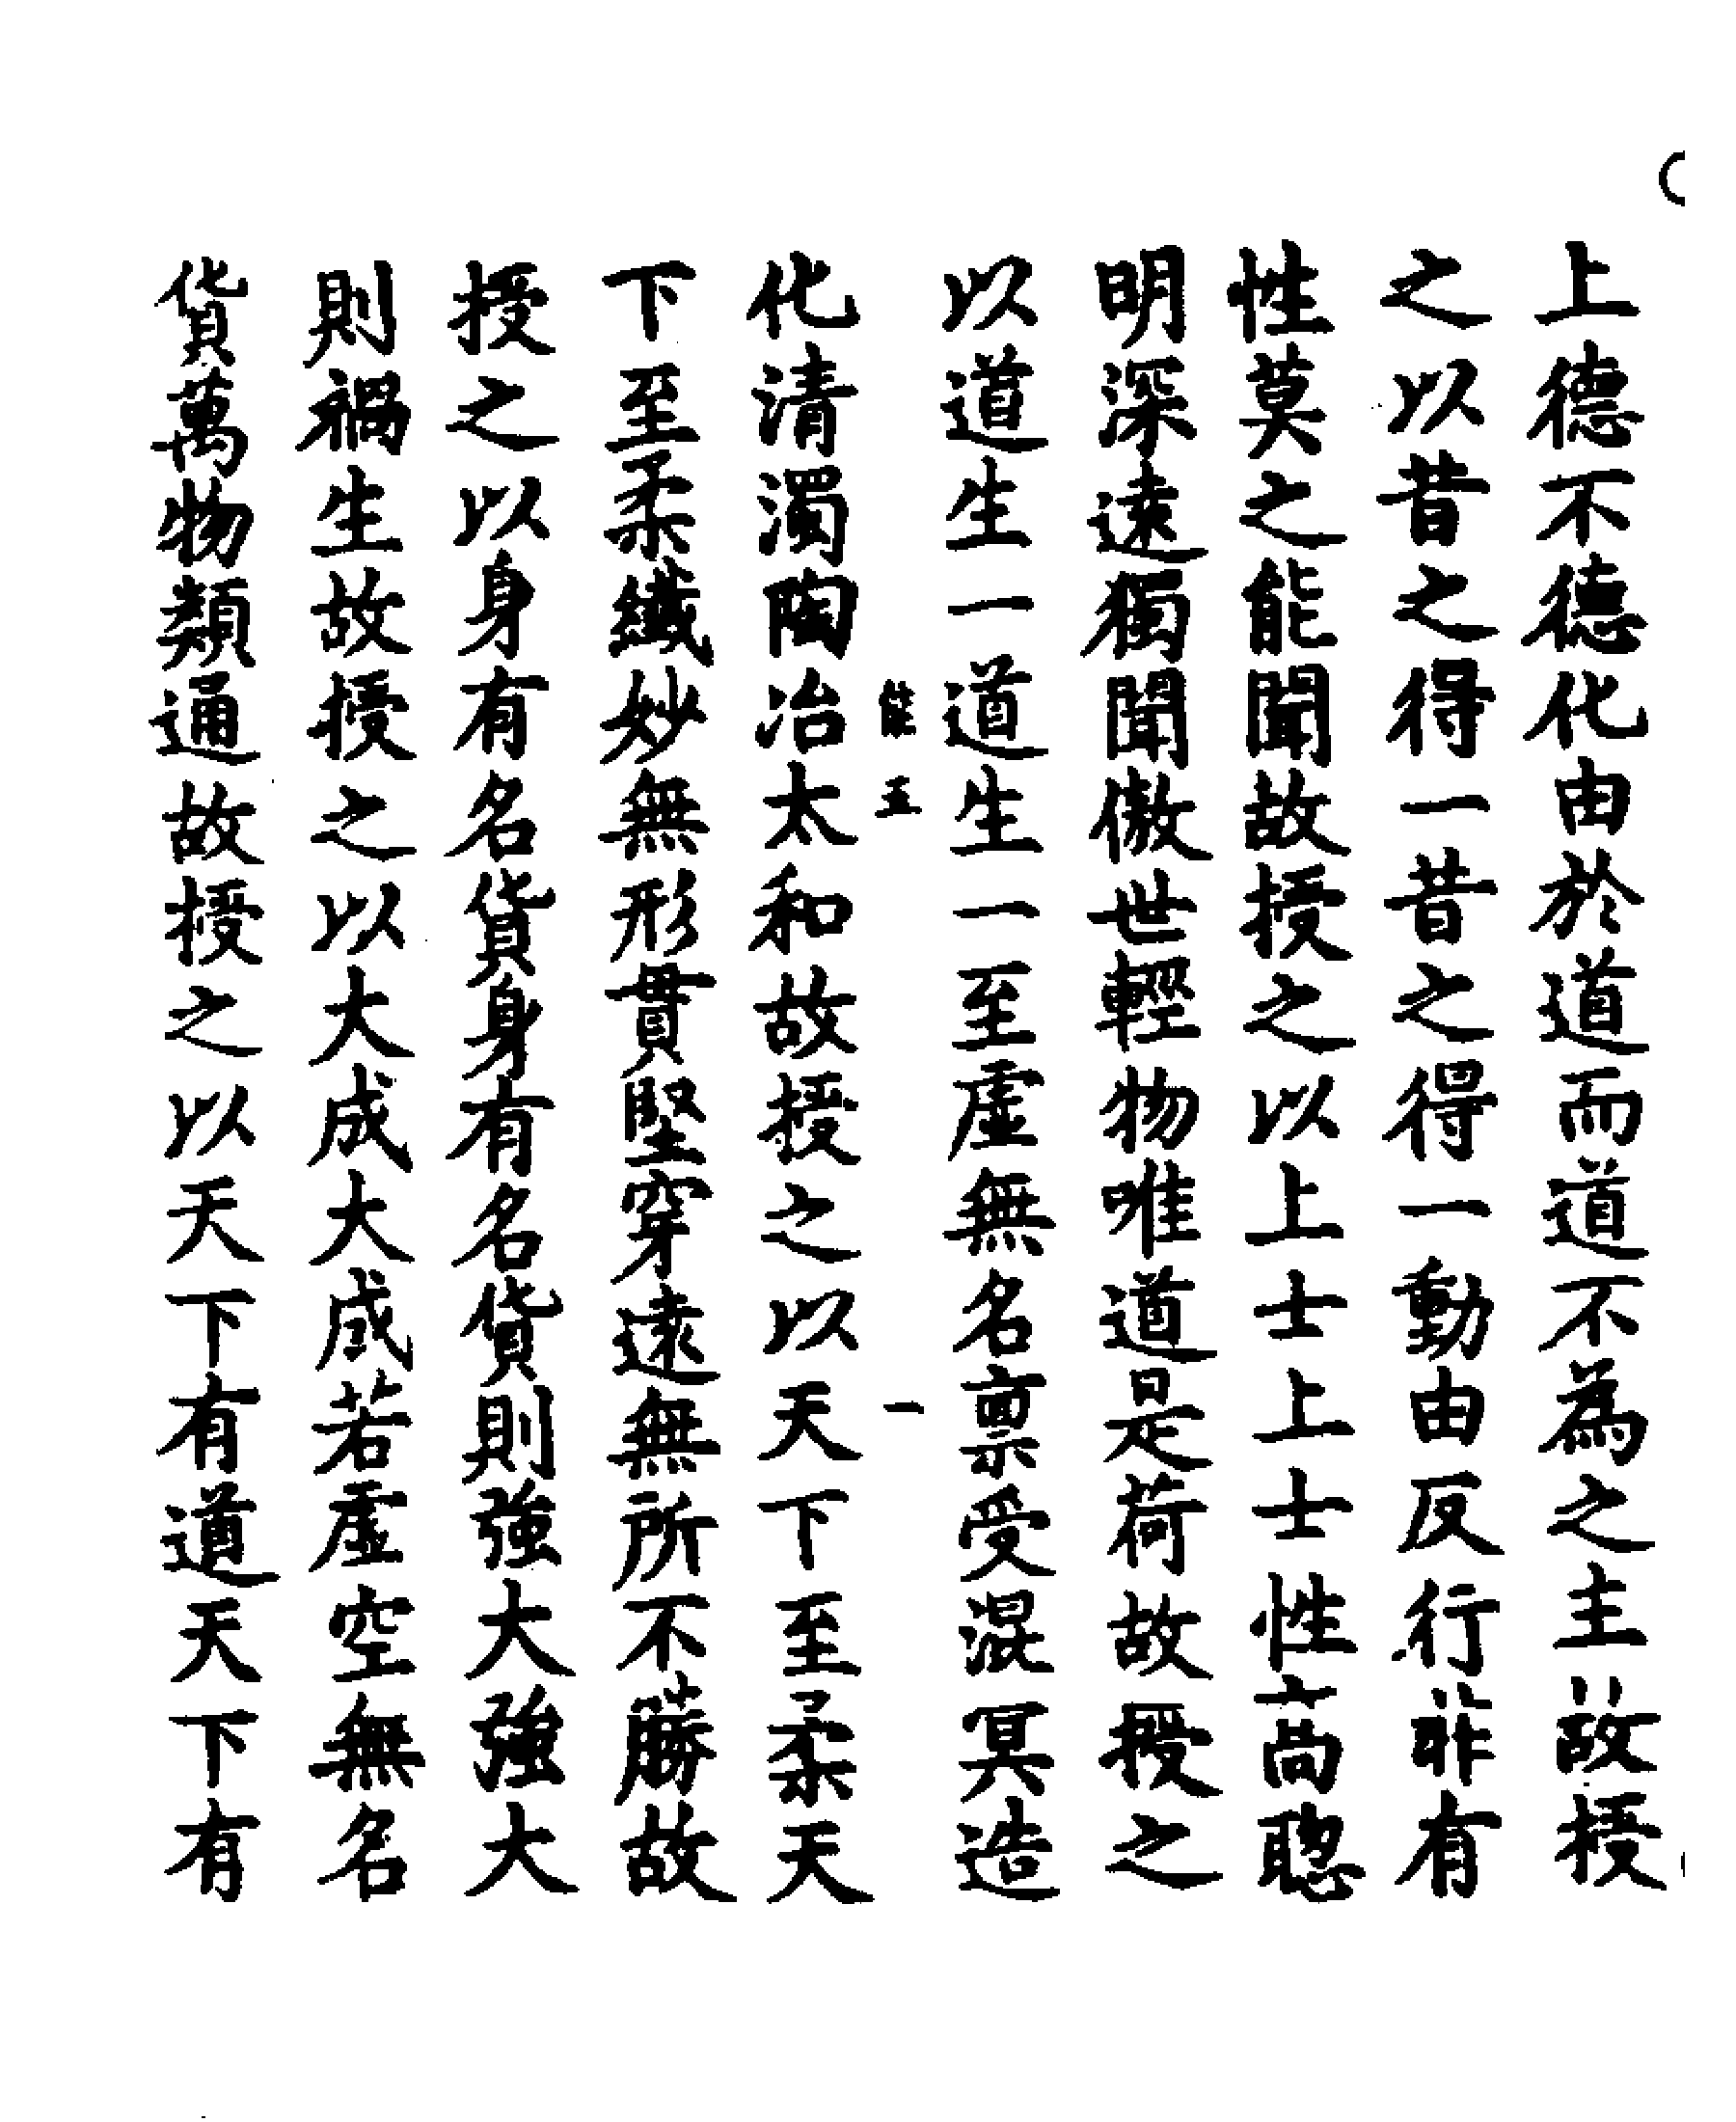 上德不德化由於道而道不為之主故授
之以昔之得一昔之得一動由反行非有
性莫之能聞故授之以上士上士性高聦
明深遠獨聞傲世輕物唯道是荷故授之
以道生一道生一至虛無名禀受混冥造
能五 一
化清濁陶冶太和故授之以天下至柔天
下至柔纖妙無形貫堅穿遠無所不勝故
授之以身有名貨身有名貨則強大強大
則禍生故授之以大成大成若虛空無名
貨萬物類通故授之以天下有道天下有